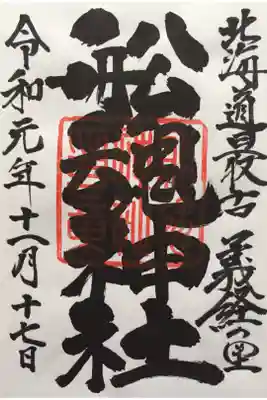 北海道最古 義経の里
船魂神社
令和元年十一月十七日